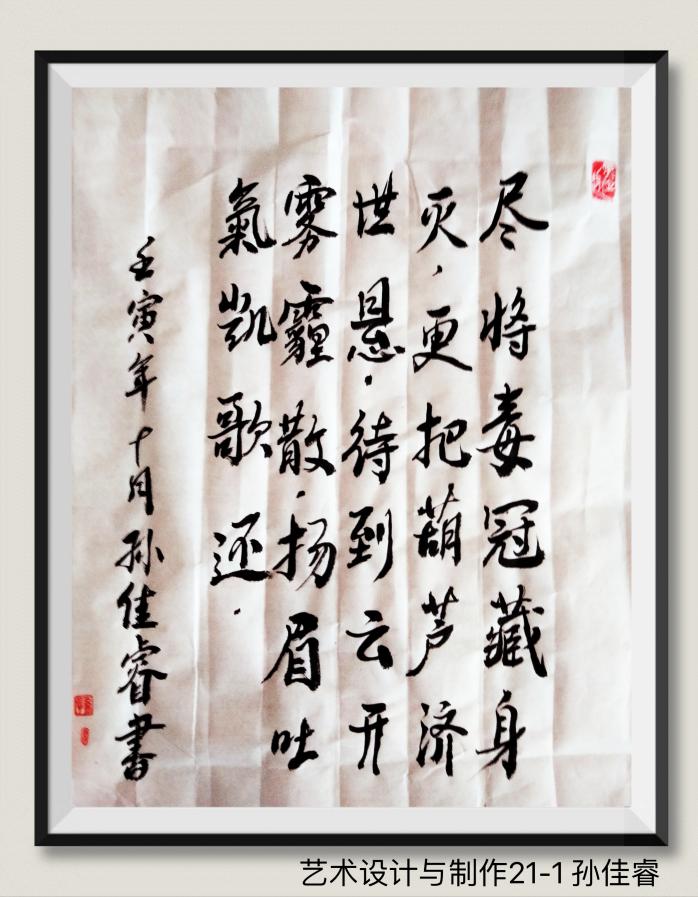 尽将毒冠藏身
灭，更把葫芦济
世悬．待到云开
雾霾散．扬眉吐
氣凯歌还．
壬寅年十月孙佳睿書
艺术设计与制作21-1 孙佳睿